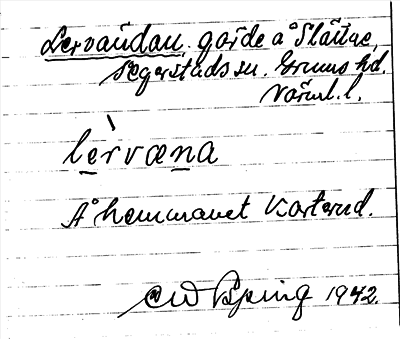 Lervändan, gärde å Slätne,
Segerstads sn. Grums hd.
Värml. l.
lèrvæna
Å hemmanet Korterud.
CW Bping 1942.